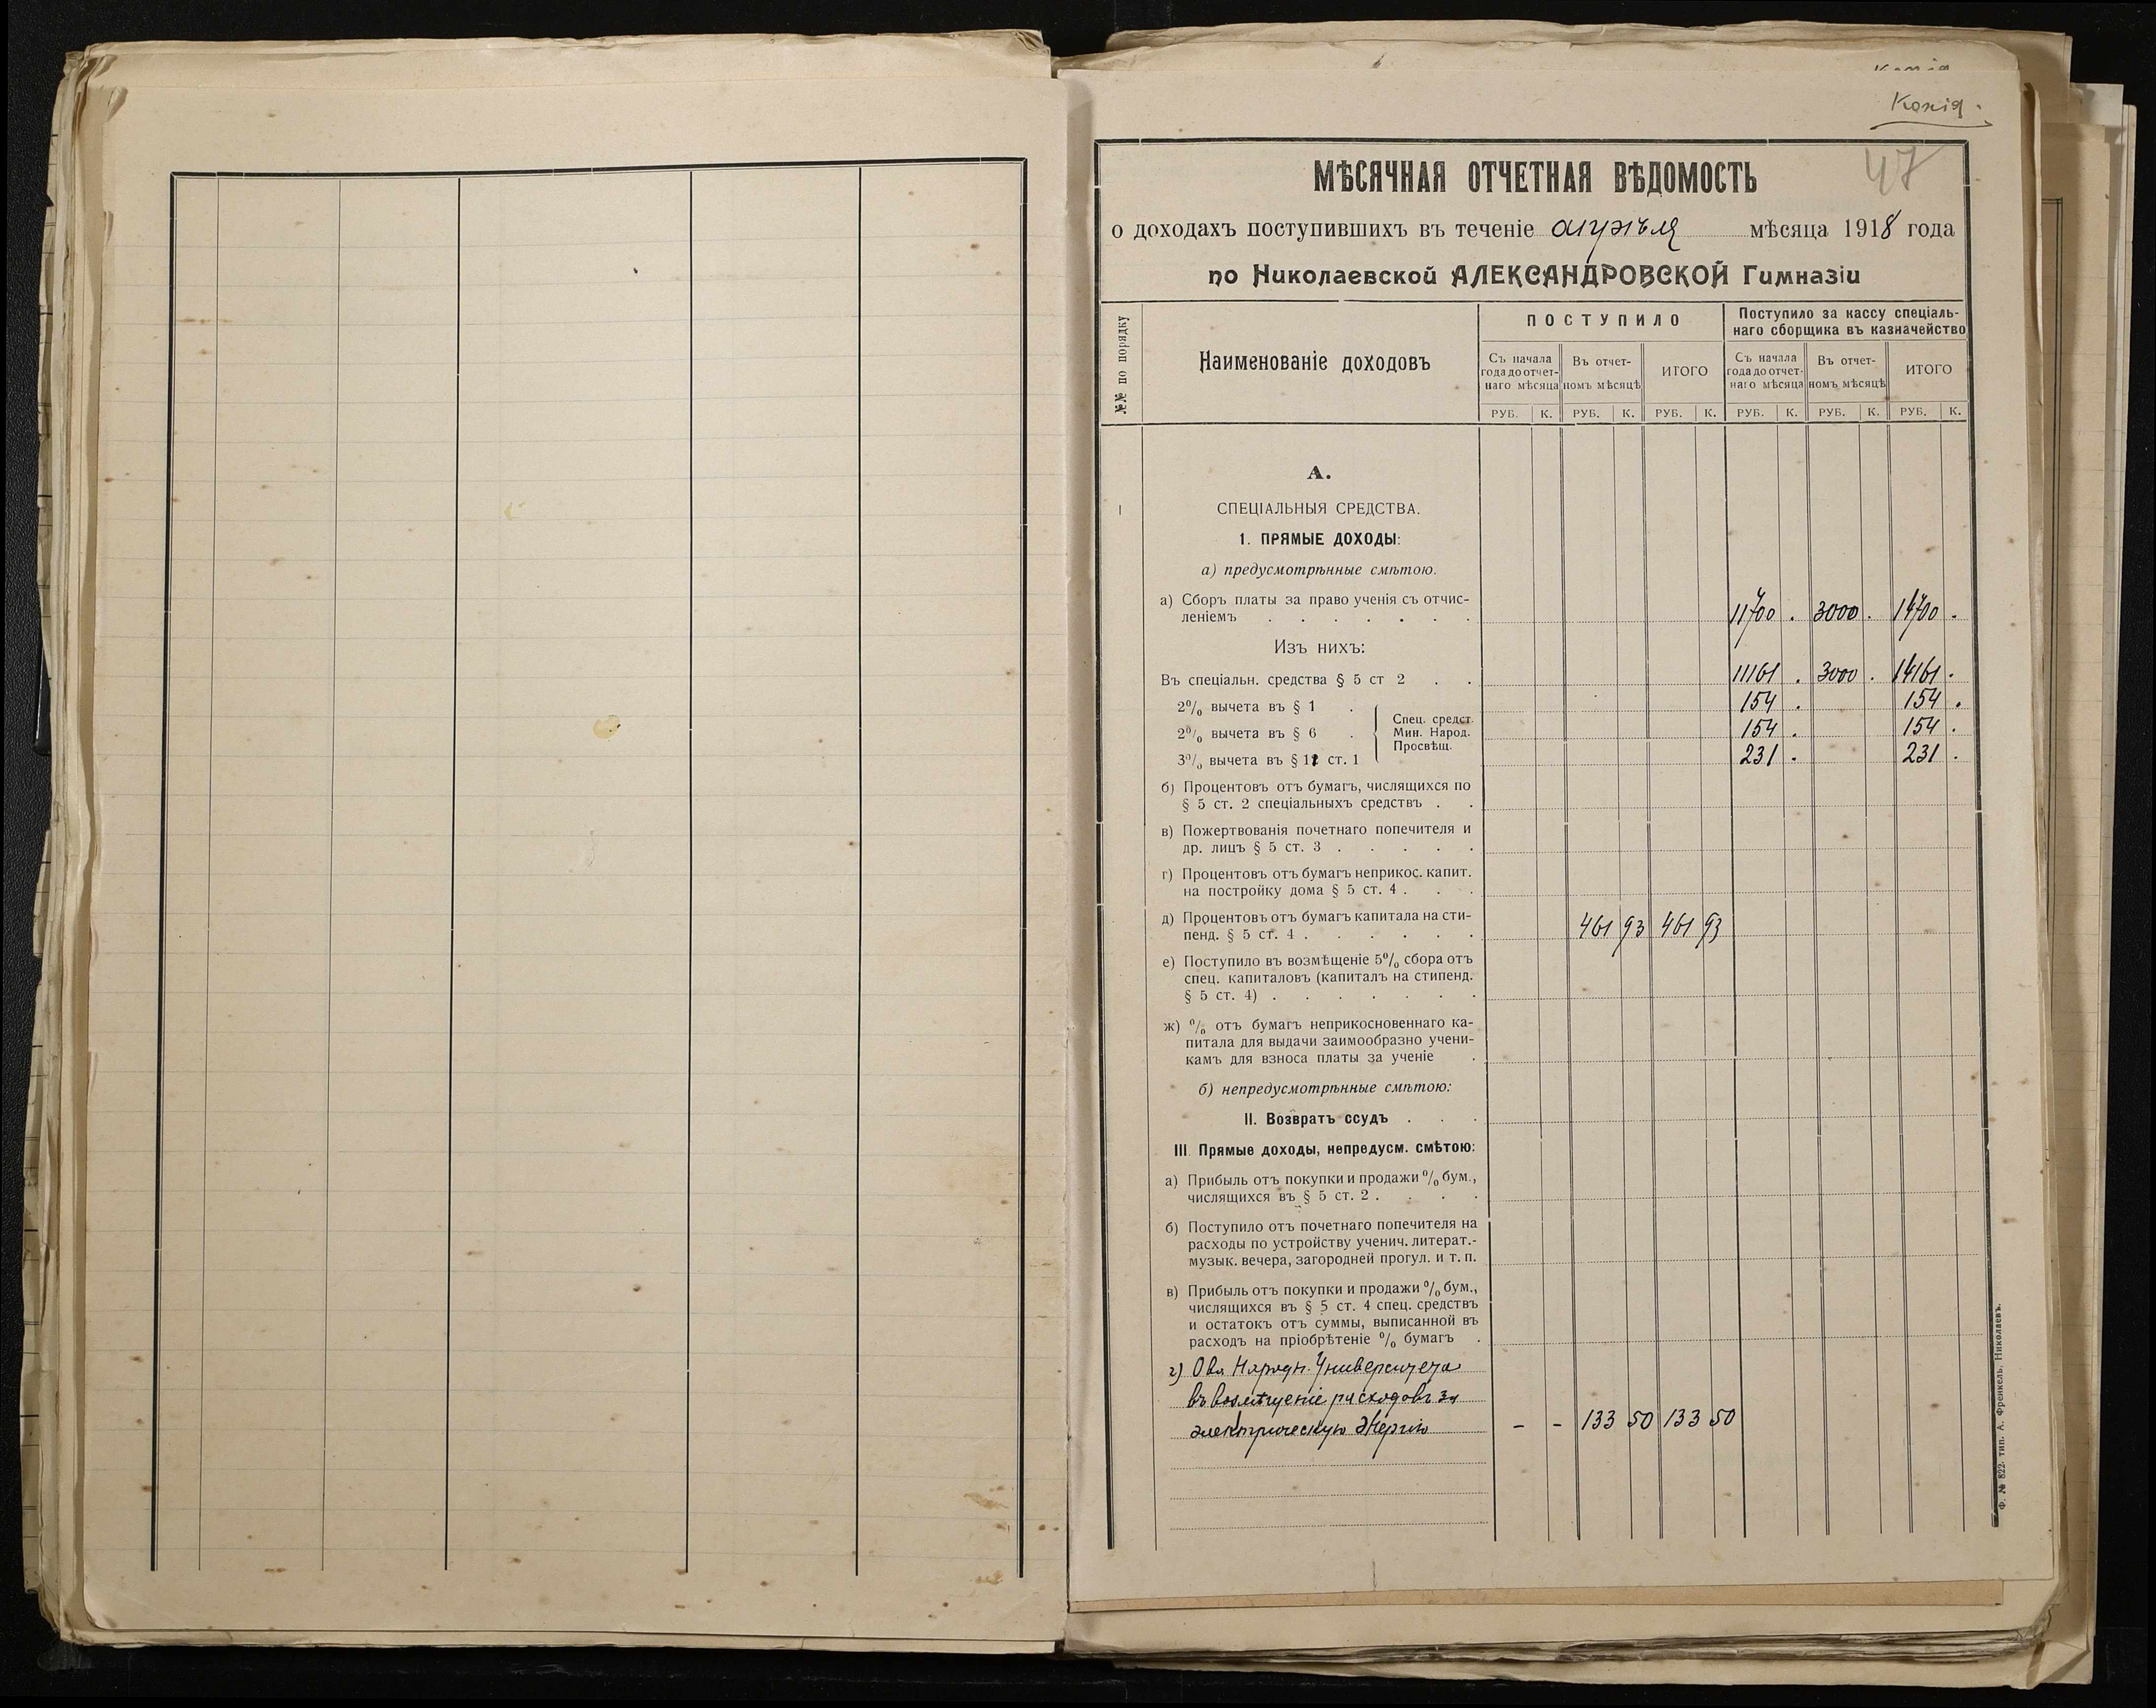 Копія.
47
МѢСЯЧНАЯ ОТЧЕТНАЯ ВѢДОМОСТЬ
о доходахъ поступившихъ въ теченіе апрѣля мѣсяца 1918 года
по Николаевской АЛЕКСАНДРОВСКОЙ Гимназіи
№№ по порядку
Наименованіе доходовъ
ПОСТУПИЛО
Поступило за кассу спеціаль-
наго сборщика въ казначейство
Съ начала года до отчет- наго мѣсяца
Въ отчет- номъ мѣсяцѣ
ИТОГО
Съ начала года до отчет- наго мѣсяца
Въ отчет- номъ мѣсяцѣ
ИТОГО
РУБ. К. РУБ. К. РУБ. К. РУБ. К. РУБ. К. РУБ. К.
А.
СПЕЦІАЛЬНЫЯ СРЕДСТВА.
1. ПРЯМЫЕ ДОХОДЫ:
а) предусмотрѣнные смѣтою.
а) Сборъ платы за право ученія съ отчис-
леніемъ . . . . . . . 11700 . 3000 . 14700 .
Изъ нихъ:
Въ спеціальн. средства § 5 ст 2 . . 11161 . 3000 . 14161 .
2% вычета въ § 1 . 154 . 154 .
2% вычета въ § 6 . 154 . 154 .
3% вычета въ § 12 ст. 1 231 . 231 .
Спец. средст.
Мин. Народ.
Просвѣщ.
б) Процентовъ отъ бумагъ, числящихся по
§ 5 ст. 2 спеціальныхъ средствъ . .
в) Пожертвованія почетнаго попечителя и
др. лицъ § 5 ст. 3 . . . . .
г) Процентовъ отъ бумагъ неприкос. капит.
на постройку дома § 5 ст. 4 . . .
д) Процентовъ отъ бумагъ капитала на сти-
пенд. § 5 ст. 4 . . . . . . 461 93 461 93
е) Поступило въ возмѣщеніе 5% сбора отъ
спец. капиталовъ (капиталъ на стипенд.
§ 5 ст. 4) . . . . . . .
ж) % отъ бумагъ неприкосновеннаго ка-
питала для выдачи заимообразно учени-
камъ для взноса платы за ученіе .
б) непредусмотрѣнные смѣтою:
II. Возвратъ ссудъ . . .
III. Прямые доходы, непредусм. смѣтою:
а) Прибыль отъ покупки и продажи % бум.,
числящихся въ § 5 ст. 2 . . . .
б) Поступило отъ почетнаго попечителя на
расходы по устройству ученич. литерат.-
музык. вечера, загородней прогул. и т. п.
в) Прибыль отъ покупки и продажи % бум.,
числящихся въ § 5 ст. 4 спец. средствъ
и остатокъ отъ суммы, выписанной въ
расходъ на пріобрѣтеніе % бумагъ .
г) Народн. Университета
въ возмѣщеніе расходовъ за
электрическую энергію - - 133 50 133 50
Ф. № 822. тип. А. Френкель, Николаевъ.